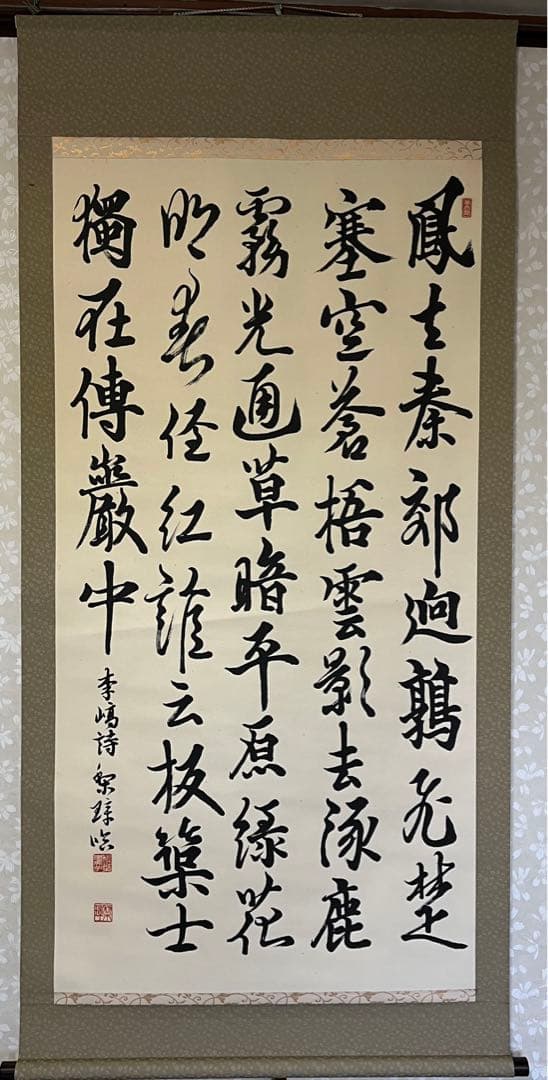 鳳去秦郊逈鶉飛楚
塞空蒼梧雲影去涿鹿
霧光通草暗平原緑花
明春径紅誰云板築士
獨在傅巖中
李嶠詩 臨